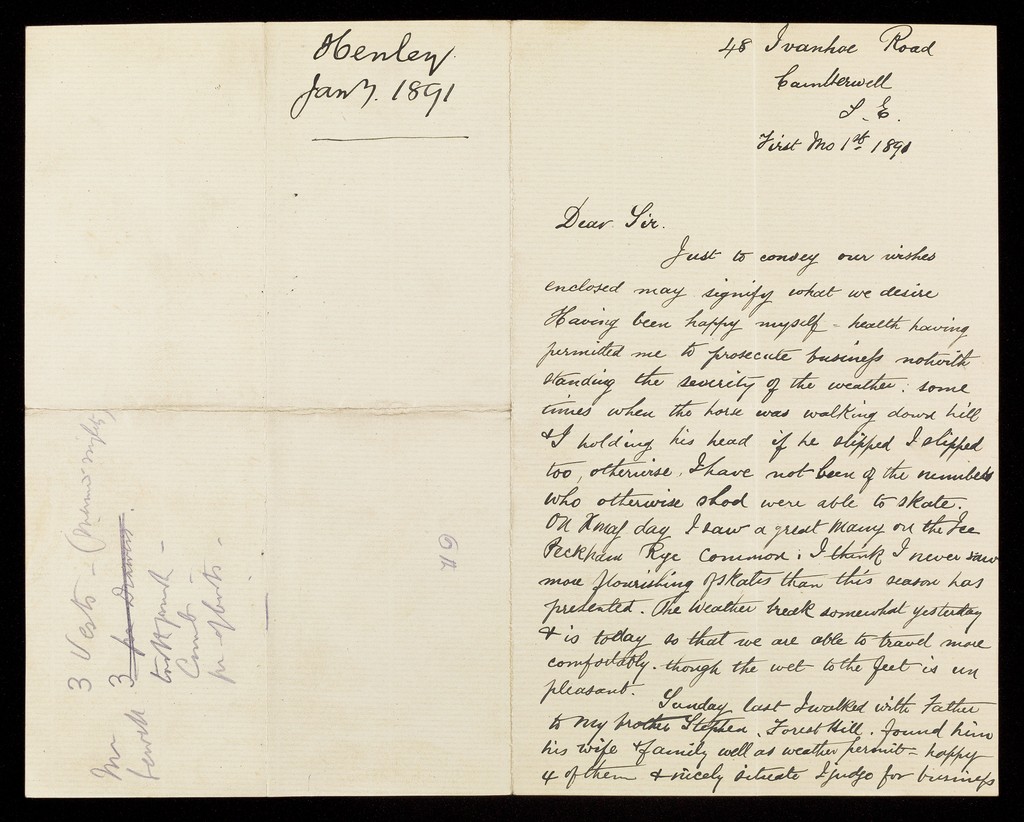 Henley
Jany. 1891
3 Vests -
3 pr Drawers.
Comb -
pr of boots -
19
48 Ivanhoe Road
Camberwell
S. E.
First Mo 1st 1891
Dear Sir.
Just to convey our wishes
enclosed may signify what we desire
Having been happy myself - health having
permitted me to prosecute business notwith
standing the severity of the weather: some
times when the horse was walking down hill
& I holding his head if he slipped I slipped
too, otherwise, I have not been of the numbers
who otherwise shod were able to skate.
On Xmas day I saw a great many on the Ice
Peckham Rye Common: I think I never saw
more flourishing of skates than this season has
presented. The weather break somewhat yesterday
& is today so that we are able to travel more
comfortably. though the wet to the feet is un
pleasant.
Sunday last I walked with Father
to my brother Stephen, Forest Hill. found him
his wife & family well as weather permit - happy
4 of them & nicely situate I judge for business